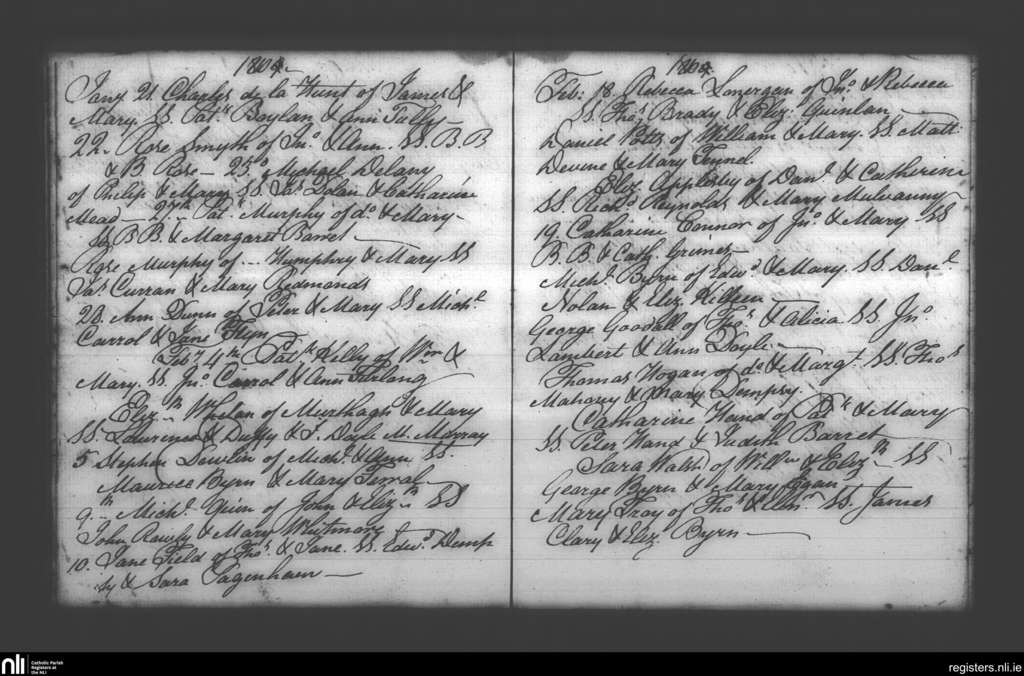 1804
Jany. 21. Charles de la Hunt of James &
Mary. SS. Patk. Boylan & Ann Tully —
22. Rose Smyth of Jno. & Ann. SS. B. B
& B Rose — 25. Michael Delany
of Philip & Mary SS. Jas. Dolan & Catharine
Mead — 27th. Patk. Murphy of do. & Mary —
SS. B B. & Margaret Barret
Rose Murphy of .. Humphry & Mary SS
Jas. Curran & Mary Redmonds
28. Ann Dunn of Peter & Mary SS Michl.
Carrol & Jane Flyn
Feby. 4th. Patk. Kelly of Wm &
Mary. SS. Jno. Carrol & Ann Furlong
Elizth. Whelan of Murthagh & Mary
SS. Laurence & Duffy & J. Doyle M. Murray
5 Stephen Dowlin of Michl. & Ann SS.
Maurice Byrn & Mary
9th. Michl. Quin of John & Elizth. SS
John Rowly & Mary Whitmore
10. Jane Field of Thos. & Jane. SS. Edwd. Demp
sy & Sara Pagenham —
1804
Feb: 18. Rebecca Lonergan of Jno. & Rebecca
SS. Thos. Brady & Eliz: Quinlan —
Daniel Potts of William & Mary. SS. Matt:
Devine & Mary Fennel
Eliz. Appleby of Danl. & Catherine
SS. Richd. Reynolds & Mary Mulvanny
19. Catharine Connor of Jno. & Mary SS
B. B. & Cath. Grimes
Michl. Byrn of Edwd. & Mary. SS. Danl.
Nolan & Eliz. Killeen
George Goodall of Thos. & Alicia SS. Jno.
Lambert & Ann Doyle —
Thomas Hogan of do. & Margt. SS. Thos.
Mahony & Mary Dempsy.
Catharine Hand of Patk. & Mary
SS. Peter Hand & Judith Barret
Sara Walsh of Willm. & Elizth. — SS
George Byrn & Mary Egan
Mary Troy of Thos. & SS. James
Clary & Eliz. Byrn —
nli
Catholic Parish
Registers at
the NLI
registers.nli.ie